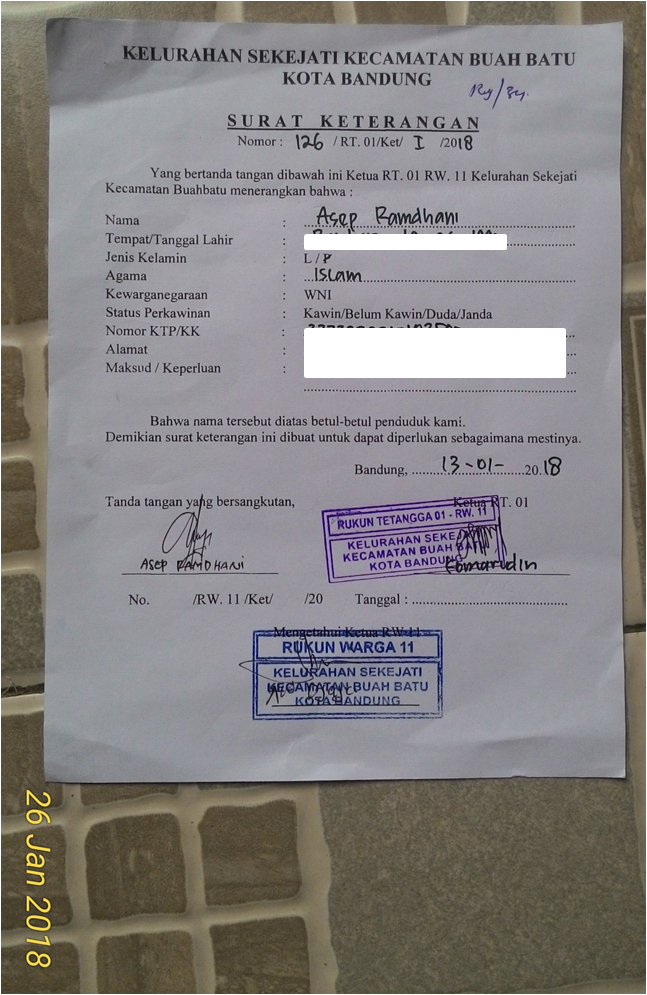 KELURAHAN SEKEJATI KECAMATAN BUAH BATU
KOTA BANDUNG
SURAT KETERANGAN
Nomor : 126 / RT. 01/Ket/ I /2018
Yang bertanda tangan dibawah ini Ketua RT. 01 RW. 11 Kelurahan Sekejati
Kecamatan Buahbatu menerangkan bahwa :
Nama : Asep Ramdhani
Tempat/Tanggal Lahir :
Jenis Kelamin : L / P
Agama : Islam
Kewarganegaraan : WNI
Status Perkawinan : Kawin/Belum Kawin/Duda/Janda
Nomor KTP/KK :
Alamat :
Maksud / Keperluan :
Bahwa nama tersebut diatas betul-betul penduduk kami.
Demikian surat keterangan ini dibuat untuk dapat diperlukan sebagaimana mestinya.
Bandung, 13-01- 20.18
Tanda tangan yang bersangkutan, Ketua RT. 01
RUKUN TETANGGA 01 - RW. 11
KELURAHAN SEKEJATI
KECAMATAN BUAH BATU
KOTA BANDUNG
ASEP RAMDHANI Komarudin
No. /RW. 11 /Ket/ /20 Tanggal :
Mengetahui Ketua RW 11
RUKUN WARGA 11
KELURAHAN SEKEJATI
KECAMATAN BUAH BATU
KOTA BANDUNG
26 Jan 2018